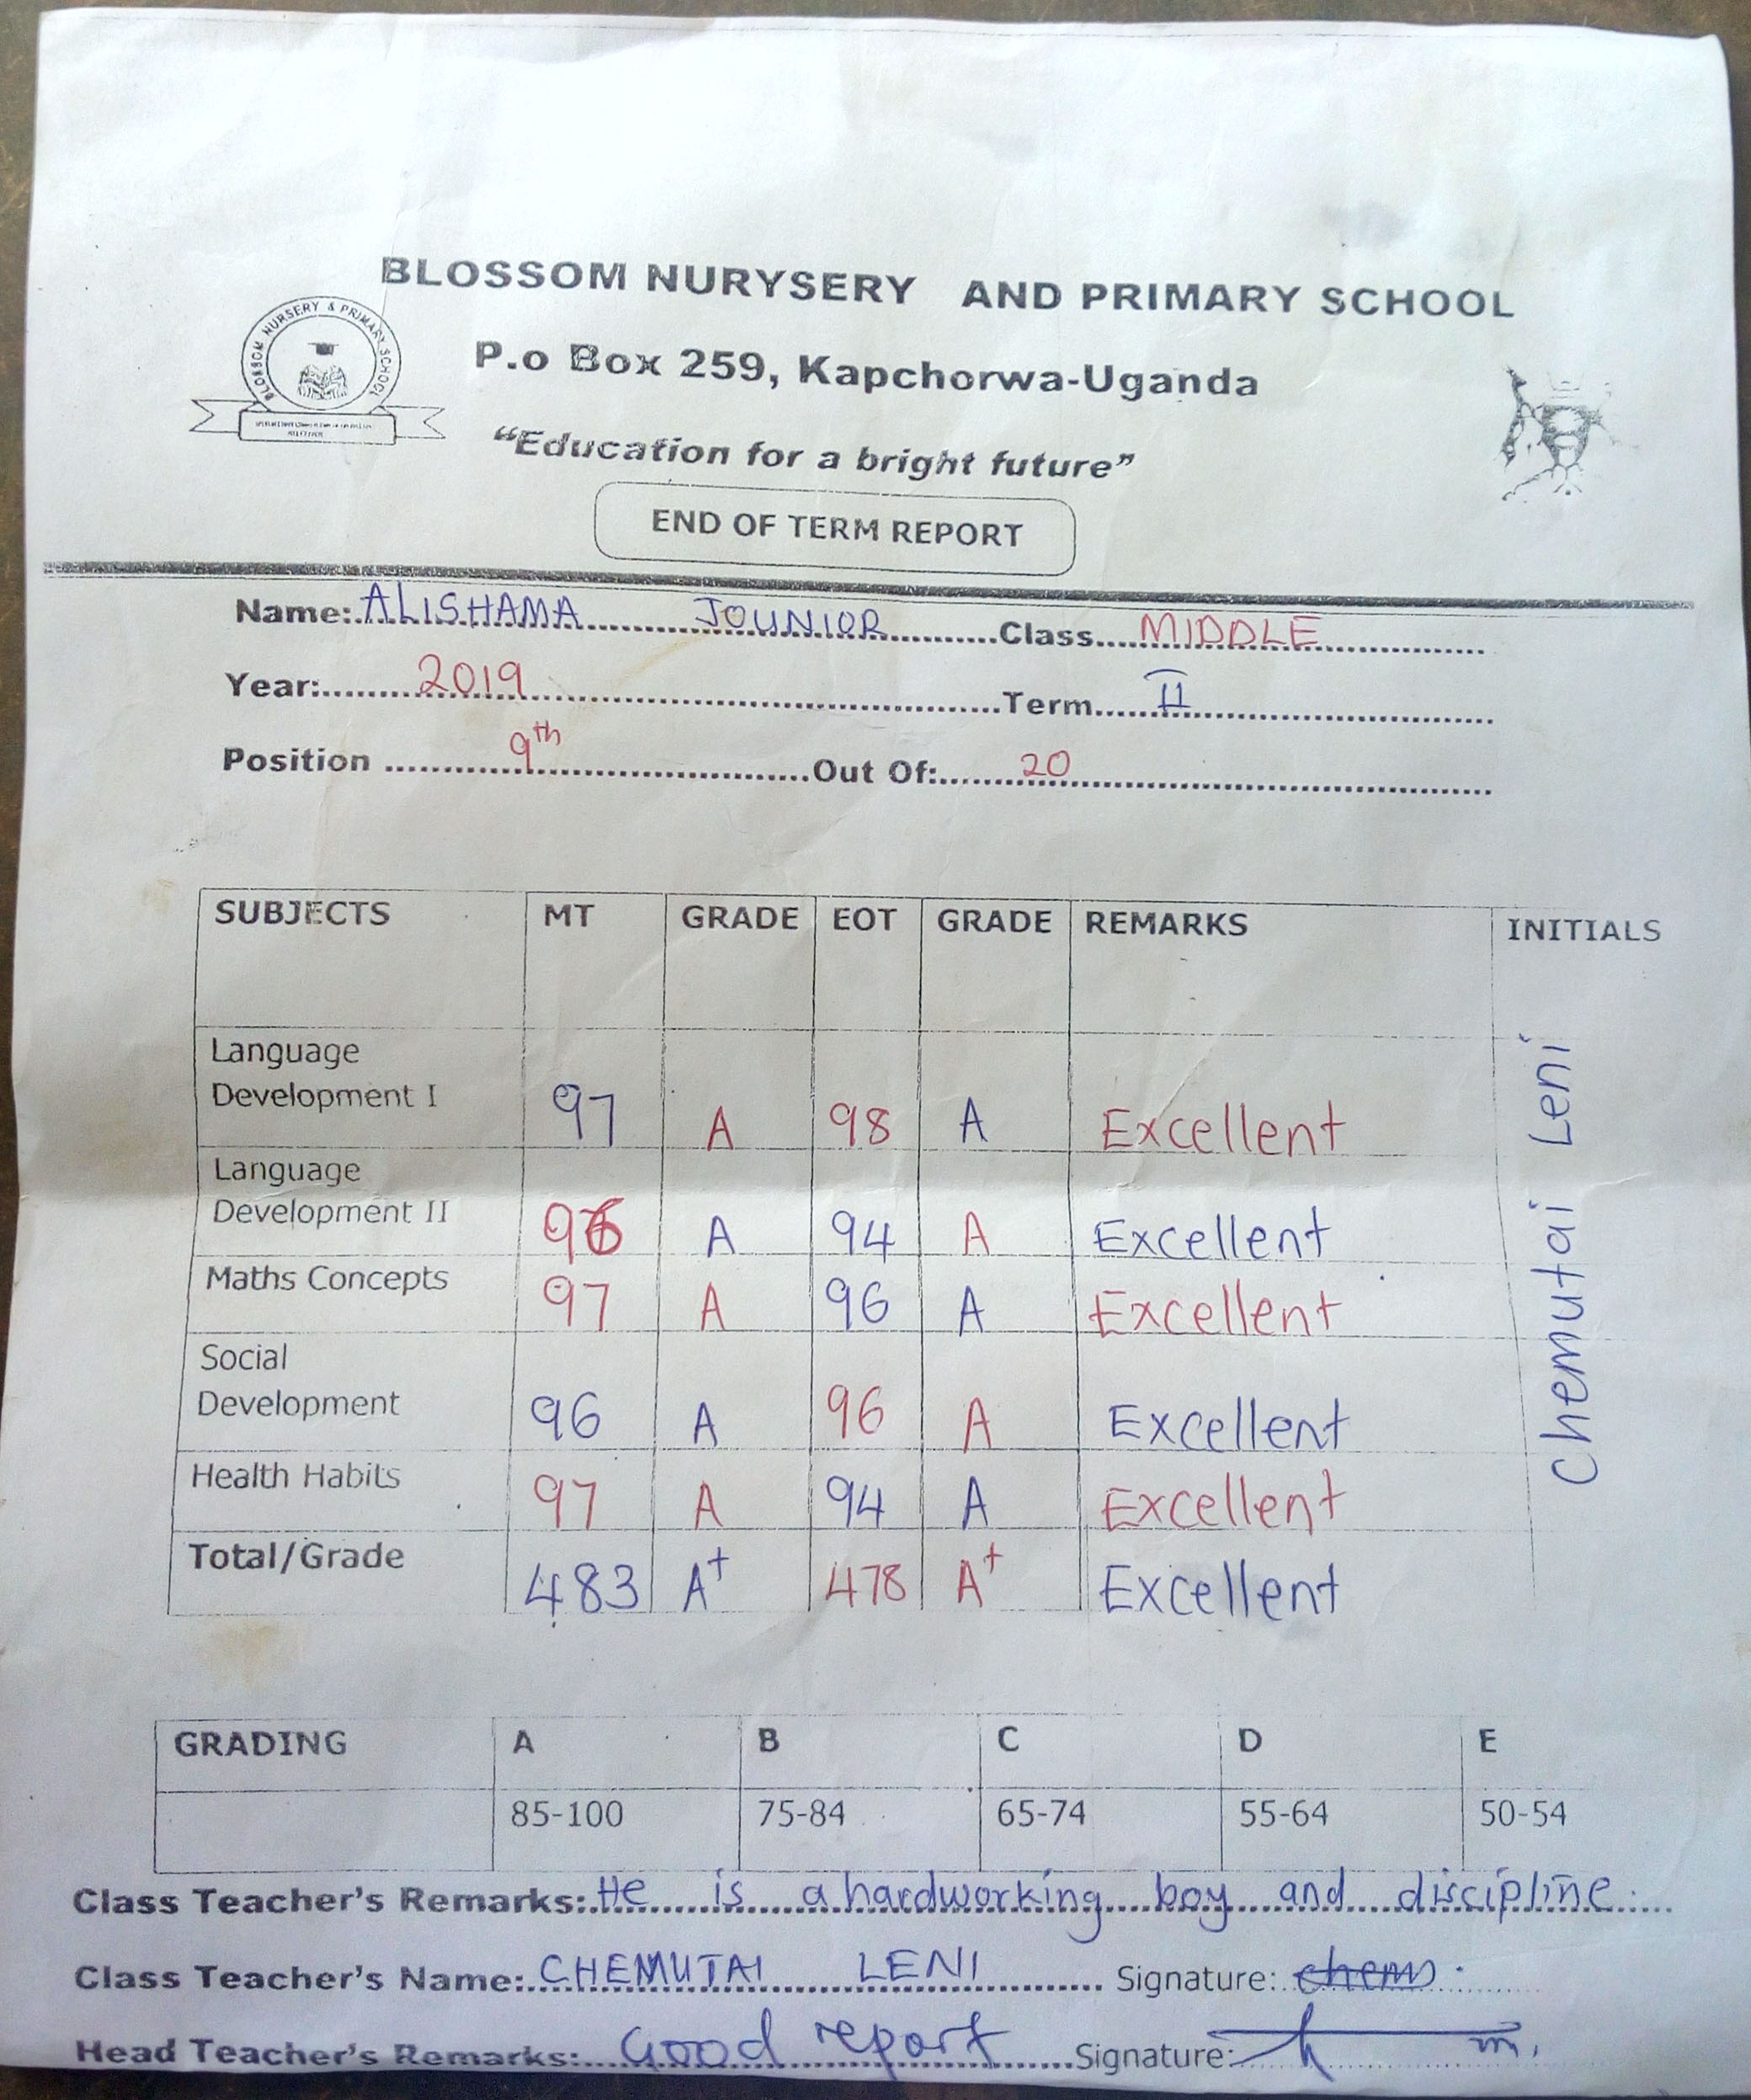 BLOSSOM NURYSERY AND PRIMARY SCHOOL
BLOSSOM NURSERY & PRIMARY SCHOOL
P.o Box 259, Kapchorwa-Uganda
“Education for a bright future”
END OF TERM REPORT
Name: ALISHAMA JOUNIOR Class MIDDLE
Year: 2019 Term II
Position 9th Out Of: 20
SUBJECTS MT GRADE EOT GRADE REMARKS INITIALS
Language
Development I 97 A 98 A Excellent
Language
Development II 96 A 94 A Excellent
Maths Concepts 97 A 96 A Excellent
Social
Development 96 A 96 A Excellent
Health Habits 97 A 94 A Excellent
Total/Grade 483 A+ 478 A+ Excellent
Chemutai Leni
GRADING A B C D E
85-100 75-84 65-74 55-64 50-54
Class Teacher’s Remarks: He is a hardworking boy and discipline.
Class Teacher’s Name: CHEMUTAI LENI Signature: chem
Head Teacher’s Remarks: Good report Signature: